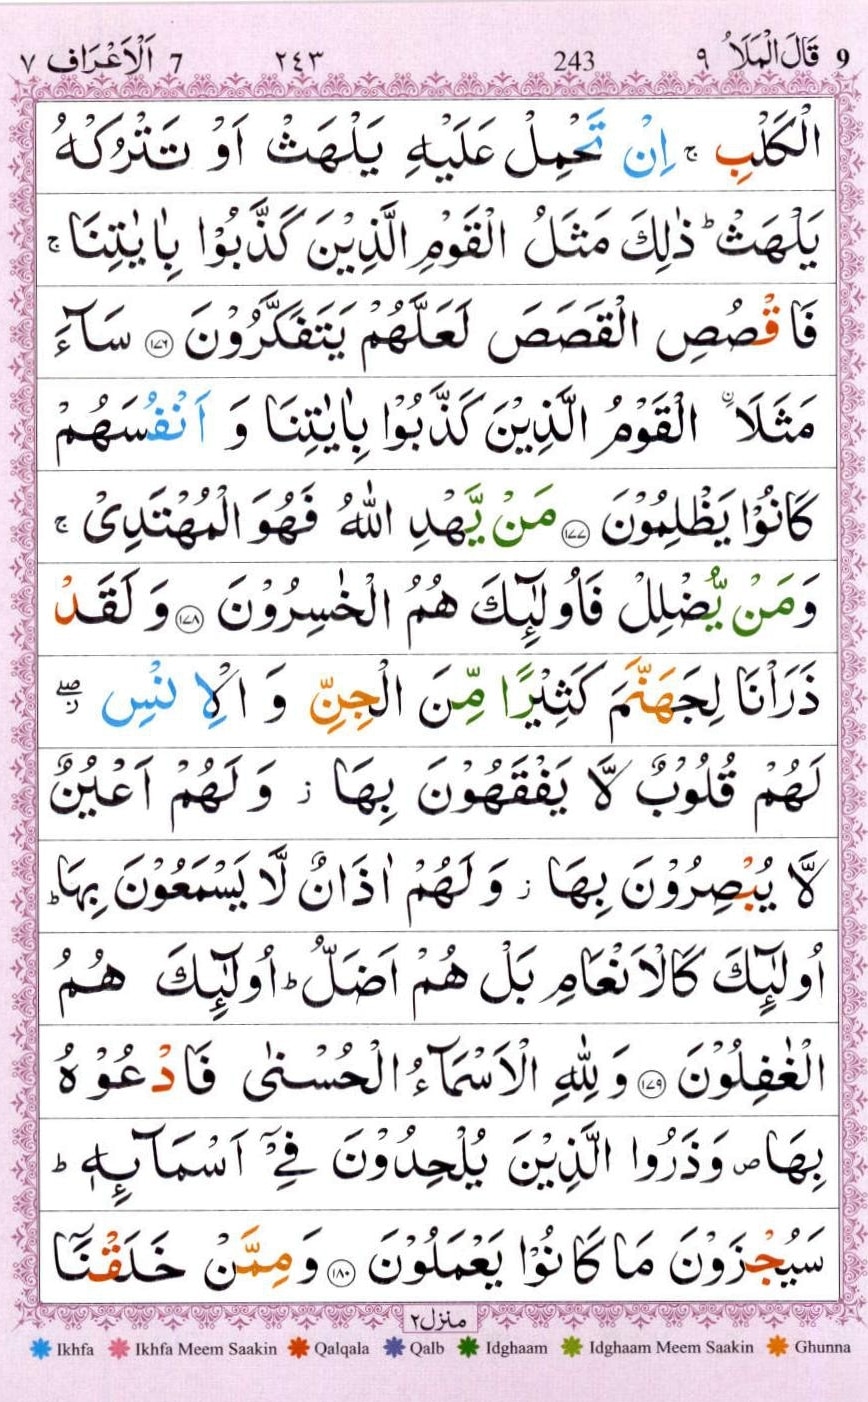 9 قَالَ الْمَلَاُ ٩ 243 ٢٤٣ 7 اَلْاَعْرَاف ٧
الْكَلْبِ ۚ اِنْ تَحْمِلْ عَلَيْهِ يَلْهَثْ اَوْ تَتْرُكْهُ
يَلْهَثْ ؕ ذٰلِكَ مَثَلُ الْقَوْمِ الَّذِيْنَ كَذَّبُوْا بِاٰيٰتِنَا ۚ
فَاقْصُصِ الْقَصَصَ لَعَلَّهُمْ يَتَفَكَّرُوْنَ ﴿۱۷۶﴾ سَآءَ
مَثَلَا ۨ الْقَوْمُ الَّذِيْنَ كَذَّبُوْا بِاٰيٰتِنَا وَ اَنْفُسَهُمْ
كَانُوْا يَظْلِمُوْنَ ﴿۱۷۷﴾ مَنْ يَّهْدِ اللّٰهُ فَهُوَ الْمُهْتَدِيْ ۚ
وَمَنْ يُّضْلِلْ فَاُولٰٓئِكَ هُمُ الْخٰسِرُوْنَ ﴿۱۷۸﴾ وَ لَقَدْ
ذَرَاْنَا لِجَهَنَّمَ كَثِيْرًا مِّنَ الْجِنِّ وَ الْاِنْسِ ۖ ز
لَهُمْ قُلُوْبٌ لَّا يَفْقَهُوْنَ بِهَا ز وَ لَهُمْ اَعْيُنٌ
لَّا يُبْصِرُوْنَ بِهَا ز وَ لَهُمْ اٰذَانٌ لَّا يَسْمَعُوْنَ بِهَا ؕ
اُولٰٓئِكَ كَالْاَنْعَامِ بَلْ هُمْ اَضَلُّ ؕ اُولٰٓئِكَ هُمُ
الْغٰفِلُوْنَ ﴿۱۷۹﴾ وَ لِلّٰهِ الْاَسْمَآءُ الْحُسْنٰى فَادْعُوْهُ
بِهَا ص وَذَرُوا الَّذِيْنَ يُلْحِدُوْنَ فِيْٓ اَسْمَآئِهٖ ؕ
سَيُجْزَوْنَ مَا كَانُوْا يَعْمَلُوْنَ ﴿۱۸۰﴾ وَ مِمَّنْ خَلَقْنَآ
منزل٢
Ikhfa Ikhfa Meem Saakin Qalqala Qalb Idghaam Idghaam Meem Saakin Ghunna